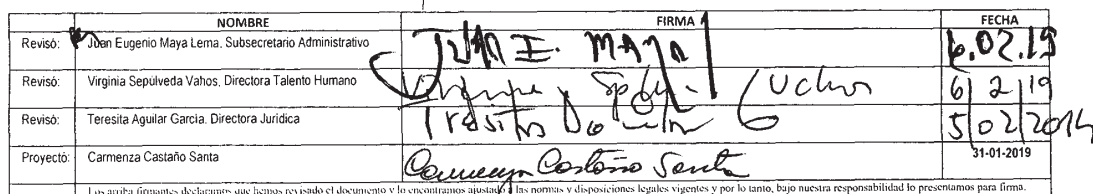 NOMBRE FIRMA FECHA
Revisó: Juan Eugenio Maya Lema. Subsecretario Administrativo JUAN E. MAYA 6.02.19
Revisó: Virginia Sepúlveda Vahos, Directora Talento Humano 6/2/19
Revisó: Teresita Aguilar García. Directora Jurídica 5/02/2019
Proyectó: Carmenza Castaño Santa Carmenza Castaño Santa 31-01-2019
Los arriba firmantes declaramos que hemos revisado el documento y lo encontramos ajustado a las normas y disposiciones legales vigentes y por lo tanto, bajo nuestra responsabilidad lo presentamos para firma.